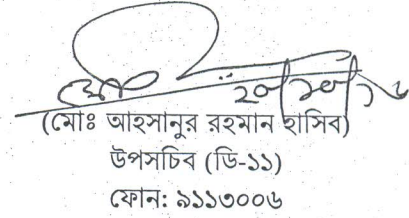 ২০/১০/১৬
(মোঃ আহসানুর রহমান হাসিব)
উপসচিব (ডি-১১)
ফোন: ৯১১৩০০৬